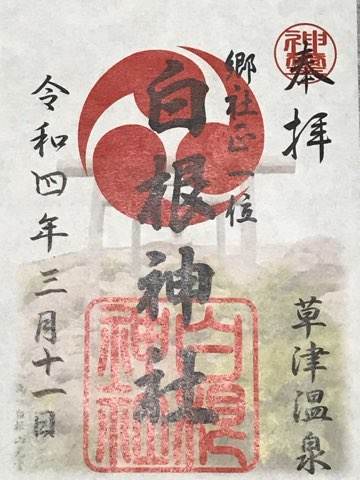 奉拝
草津温泉
郷社正一位
白根神社
白根神社
令和四年三月十一日